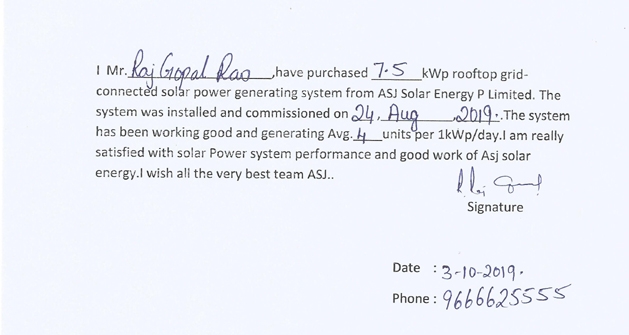 I Mr. Raj Gopal Rao ,have purchased 7.5 kWp rooftop grid-
connected solar power generating system from ASJ Solar Energy P Limited. The
system was installed and commissioned on 24, Aug ,2019. .The system
has been working good and generating Avg. 4 units per 1kWp/day.I am really
satisfied with solar Power system performance and good work of Asj solar
energy.I wish all the very best team ASJ..
Signature
Date : 3-10-2019.
Phone : 9666625555